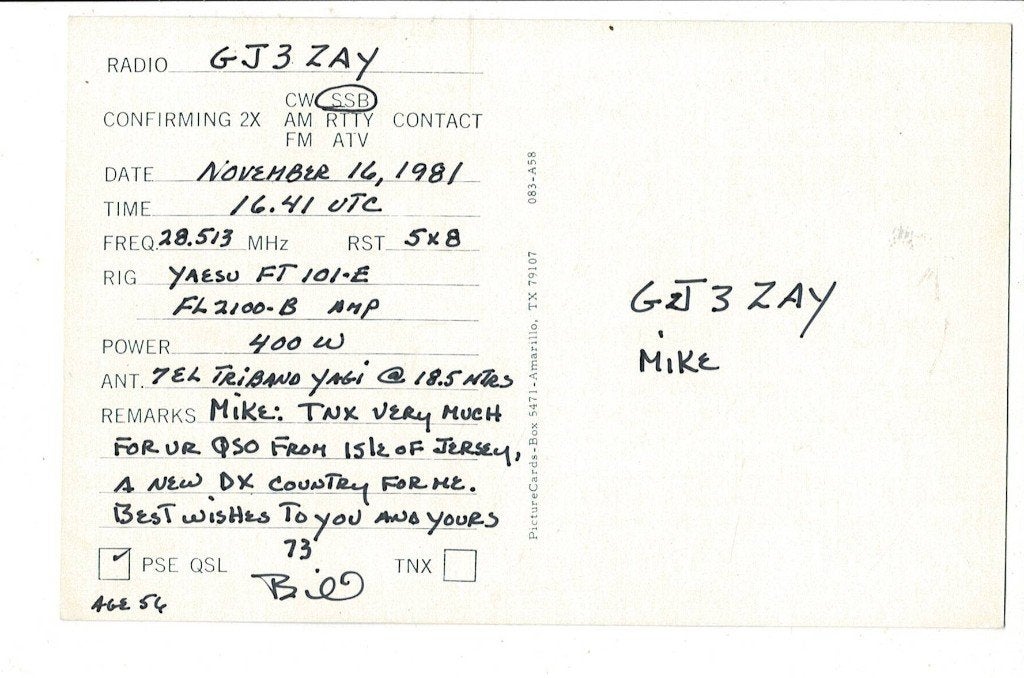 RADIO GJ3ZAY
CW SSB
CONFIRMING 2X AM RTTY CONTACT
FM ATV
DATE NOVEMBER 16, 1981
TIME 16.41 UTC
FREQ. 28.513 MHz RST 5x8
RIG YAESU FT 101-E
FL2100-B AMP
POWER 400 W
ANT. 7EL TRIBAND YAGI @ 18.5 MTRS
REMARKS MIKE: TNX VERY MUCH
FOR UR QSO FROM ISLE OF JERSEY,
A NEW DX COUNTRY FOR ME.
BEST WISHES TO YOU AND YOURS
73
PSE QSL TNX
Bill
AGE 56
083-A58
PictureCards-Box 5471-Amarillo, TX 79107
GJ3ZAY
MIKE